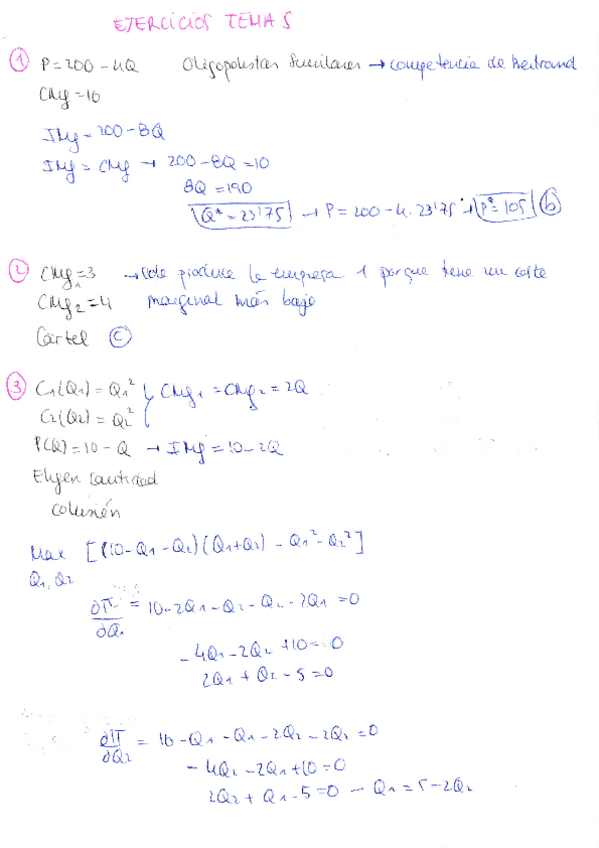 EJERCICIOS TEMA 5
① P = 200 - 4Q Oligopolistas similares → competencia de Bertrand
CMg = 10
IMg = 200 - 8Q
IMg = CMg → 200 - 8Q = 10
8Q = 190
Q* = 23'75 → P = 200 - 4. 23'75 → P* = 105 b
② CMg1 = 3 → solo produce la empresa 1 porque tiene un coste
CMg2 = 4 marginal más bajo
Cártel c
③ C1(Q1) = Q1² CMg1 = CMg2 = 2Q
C2(Q2) = Q2²
P(Q) = 10 - Q → IMg = 10 - 2Q
Eligen cantidad
colusión
Max [(10 - Q1 - Q2)(Q1 + Q2) - Q1² - Q2²]
Q1, Q2
∂π/∂Q1 = 10 - 2Q1 - Q2 - Q2 - 2Q1 = 0
- 4Q1 - 2Q2 + 10 = 0
2Q1 + Q2 - 5 = 0
∂π/∂Q2 = 10 - Q1 - Q1 - 2Q2 - 2Q2 = 0
- 4Q2 - 2Q1 + 10 = 0
2Q2 + Q1 - 5 = 0 - Q1 = 5 - 2Q2